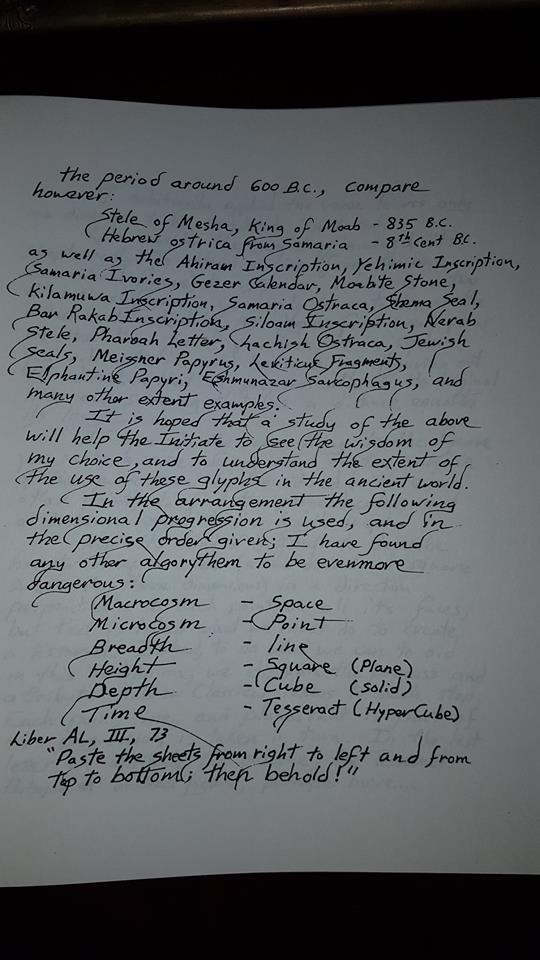 the period around 600 B.C., compare
however:
Stele of Mesha, King of Moab - 835 B.C.
Hebrew ostrica from Samaria - 8th Cent B.C.
as well as the Ahiram Inscription, Yehimic Inscription,
Samaria Ivories, Gezer Calendar, Moabite Stone,
Kilamuwa Inscription, Samaria Ostraca, Shema Seal,
Bar Rakab Inscription, Siloam Inscription, Nerab
Stele, Pharoah Letter, Lachish Ostraca, Jewish
Seals, Meissner Papyrus, Leviticus Fragments,
Elphantine Papyri, Eshmunazar Sarcophagus, and
many other extent examples.
It is hoped that a study of the above
will help the Initiate to see the wisdom of
my choice, and to understand the extent of
the use of these glyphs in the ancient world.
In the arrangement the following
dimensional progression is used, and in
the precise order given; I have found
any other algorythem to be evenmore
dangerous:
Macrocosm - Space
Microcosm - Point
Breadth - line
Height - Square (Plane)
Depth - Cube (Solid)
Time - Tesseract (HyperCube)
Liber AL, III, 73
"Paste the sheets from right to left and from
top to bottom; then behold!"